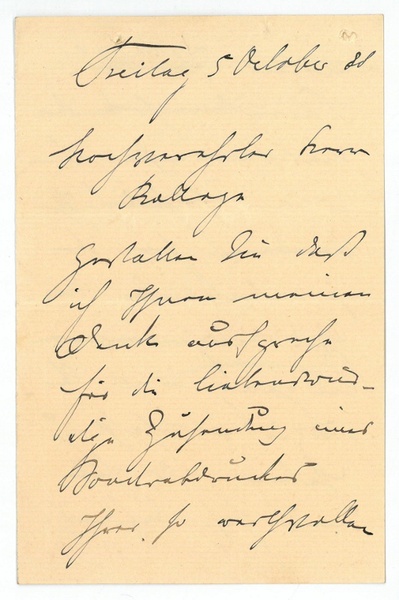 Freitag 5 October 88
Hochverehrter Herr
College
Gestatten Sie daß
ich Ihnen meinen
Dank ausspreche
für die liebenswür-
dige Zusendung eines
Sonderabdruckes
Ihrer so werthvollen